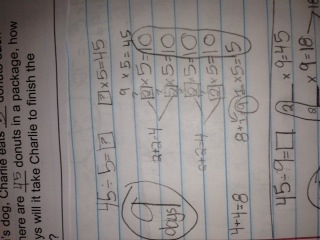 's dog, Charlie eats 5 donuts
here are 45 donuts in a package, how
ys will it take Charlie to finish the
?
45 ÷ 5 = ? ? x 5 = 45
9 x 5 = 45
9 days
2+2=4 2 x 5 = 10
2 x 5 = 10
2+2=4 2 x 5 = 10
2 x 5 = 10
4+4=8 8+1=9 1 x 5 = 5
45 ÷ 9 = 2 x 9 = 45
x 9 = 18